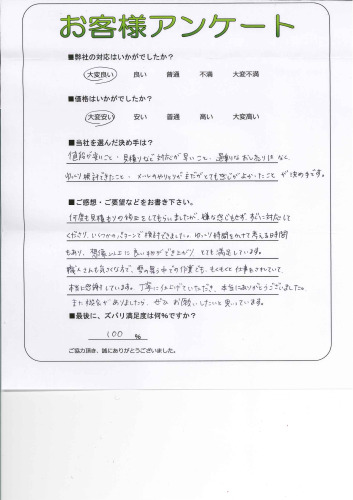 お客様アンケート
■弊社の対応はいかがでしたか?
大変良い 良い 普通 不満 大変不満
■価格はいかがでしたか?
大変安い 安い 普通 高い 大変高い
■当社を選んだ決め手は?
値段が安いこと・見積りなど対応が早いこと・過剰なおし売りはなく、
ゆっくり検討できたこと・メールのやりとりがまだがとても感じがよかったことが決め手です。
■ご感想・ご要望などをお書き下さい。
何度も見積もりの修正をしてもらいましたが、嫌な感じもせず、すぐに対応して
くださり、いくつかのパターンで検討できました。ゆっくり時間をかけて考える時間
もあり、想像以上に良いものができ上がり とても満足しています。
職人さんも気さくな方で、暑い中での作業でも、もくもくと仕事をされていて、
本当に感謝しています。丁寧に仕上げていただき、本当にありがとうございました。
また機会がありましたら、ぜひ お願いしたいと思っています。
■最後に、ズバリ満足度は何%ですか?
100 %
ご協力頂き、誠にありがとうございました。